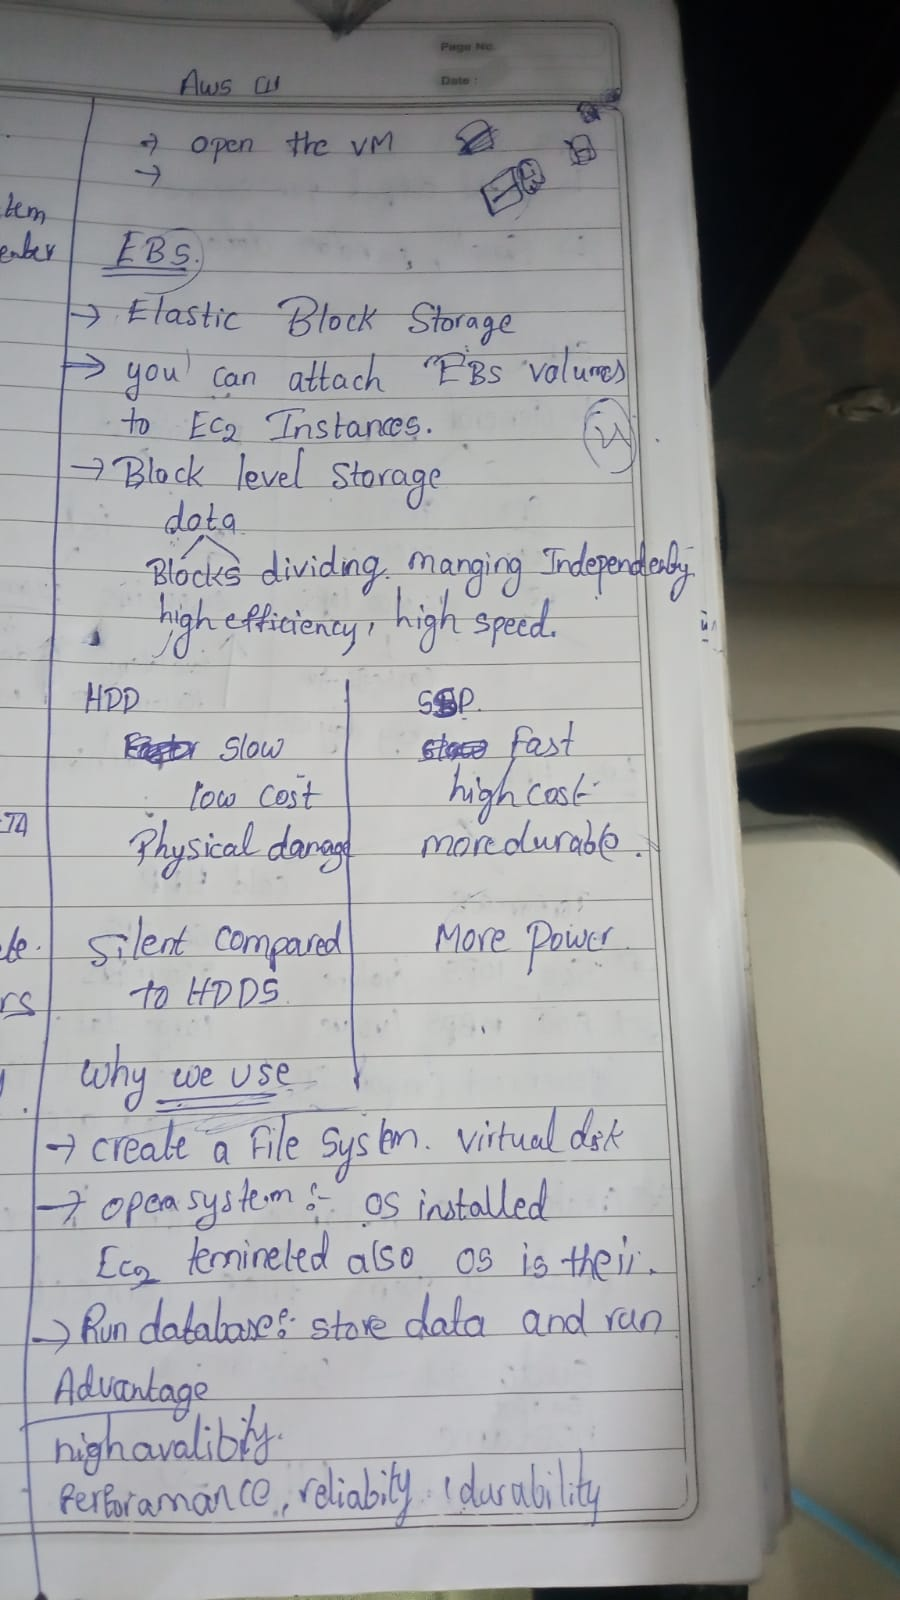 Page No.
Date :
Aws CLI
→ open the VM
→
tem
EBS.
→ Elastic Block Storage
→ you can attach EBS volumes
to EC2 Instances.
→ Block level Storage
data
Blocks dividing. manging Independenby
high efficiency, high speed.
HDD
SSD.
slow
Fast
low cost
high cost
Physical damage
more durable.
Silent compared
More power.
to HDDS
rs
why we use
→ create a File System. virtual disk
→ opera system :- OS installed
EC2 temineted also OS is their.
→ Run database:- store data and run
Advantage
highavalibity.
Perforamance, reliabity. durability